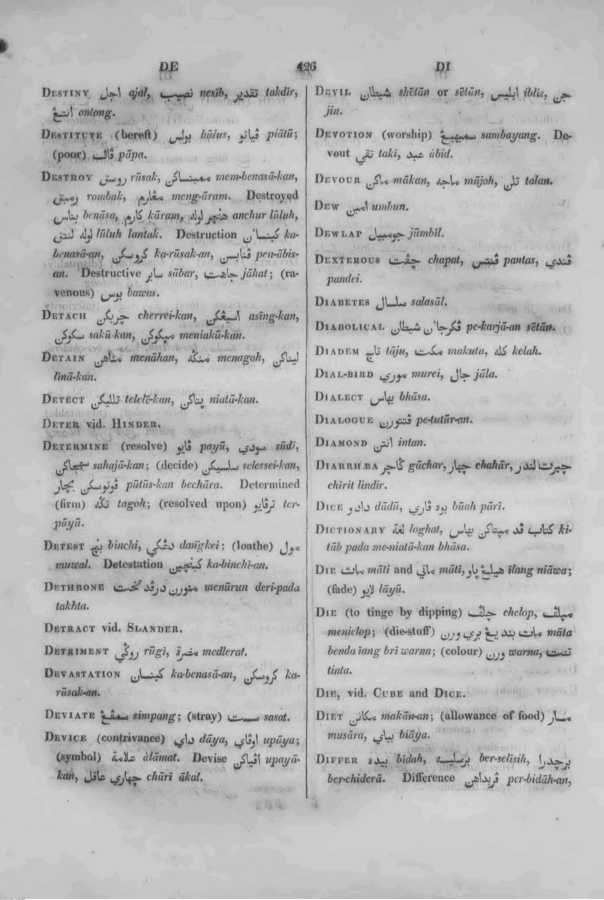 DE 426 DI
DESTINY اجل ajal, نصيب nesib, تقدير takdir,
انتغ ontong.
DESTITUTE (bereft) بولس būlus, ڤياتو piātū;
(poor) ڤاڤ pāpa.
DESTROY روسق rūsak, ممبناسكن mem-benasā-kan,
rombak, مڠارم meng-āram. Destroyed
بناس benāsa, كارم kāram, هنچر لوله anchur lūluh,
لوله لنتق lūluh lantak. Destruction كبناسان ka-
benasā-an, كروسكن ka-rūsak-an, ڤنابسن pen-ābis-
an. Destructive سابر sābar, جاهت jāhat; (ra-
venous) بوس bawus.
DETACH چريكن cherrei-kan, اسيڠكن asing-kan,
سكوكن sakū-kan, مپكوكن meniakū-kan.
DETAIN مناهن menāhan, منڬه menagoh, ليناكن
linā-kan.
DETECT تلليكن telelē-kan, پتاكن niatā-kan.
DETER vid. HINDER.
DETERMINE (resolve) ڤايو payū, سودي sūdi,
سهجاكن sahajā-kan; (decide) سلسيكن selessei-kan,
ڤوتوسكن بچار pūtūs-kan bechāra. Determined
(firm) تڬه tagoh; (resolved upon) ترڤايو ter-
pāyū.
DETEST بنچ binchi, دڠكي dangkei; (loathe) مول
muwal. Detestation كبنچين ka-binchi-an.
DETHRONE منورن درڤد تخت menūrun deri-pada
takhta.
DETRACT vid. SLANDER.
DETRIMENT روڬي rūgi, مضرة medlerat.
DEVASTATION كبناسان ka-benasā-an, كروسكن ka-
rūsak-an.
DEVIATE سمڤڠ simpang; (stray) سست sasat.
DEVICE (contrivance) داي dāya, اوڤاي upāya;
(symbol) علامة alāmat. Devise اڤياكن upayā-
kan, چهاري عاقل chāri ākal.
DEVIL شيطان shētān or sētān, ابليس iblis, جن
jin.
DEVOTION (worship) سمبهيڠ sambayang. De-
vout تقي taki, عبد ābid.
DEVOUR ماكن mākan, ماجه mājoh, تلن talan.
DEW امبن umbun.
DEWLAP جومبيل jūmbil.
DEXTEROUS چڤت chapat, ڤنتس pantas, ڤندي
pandei.
DIABETES سلسال salasāl.
DIABOLICAL ڤكرجاان شيطان pe-karjā-an sētān.
DIADEM تاج tāju, مكت makuta, كله kelah.
DIAL-BIRD موري murei, جال jāla.
DIALECT بهاس bhāsa.
DIALOGUE ڤنتورن pe-tutūr-an.
DIAMOND انتن intan.
DIARRHŒA ڬاچر gāchar, چهار chahār, چيرت لندر
chirit lindir.
DICE دادو dādū, بوه ڤاري būah pāri.
DICTIONARY لغة loghat, كتاب ڤد مپتاكن بهاس ki-
tāb pada me-niatā-kan bhāsa.
DIE مات māti and ماتي māti, هيلڠ پاو ilang niāwa;
(fade) لايو lāyū.
DIE (to tinge by dipping) چلڤ chelop, مپلڤ
menielop; (die-stuff) māta
benda iang bri warna; (colour) ورن warna, تنت
tinta.
DIE, vid. CUBE and DICE.
DIET مكانن makān-an; (allowance of food) مسار
musāra, بياي biāya.
DIFFER بيده bidah, برسليسه ber-selīsih, برچدرا
ber-chiderā. Difference ڤربداهن per-bidāh-an,